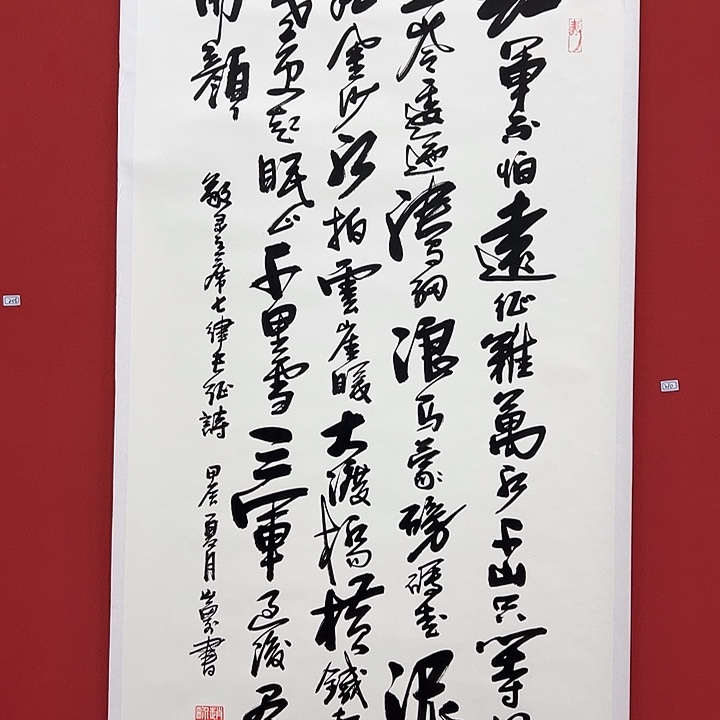 軍不怕遠征難萬水千山只等
嶺逶迤騰細浪烏蒙磅礴走泥
金沙水拍雲崖暖大渡橋橫鐵
更喜岷山千里雪三軍過後
開顏
敬录主席七律長征詩 甲辰夏月 書